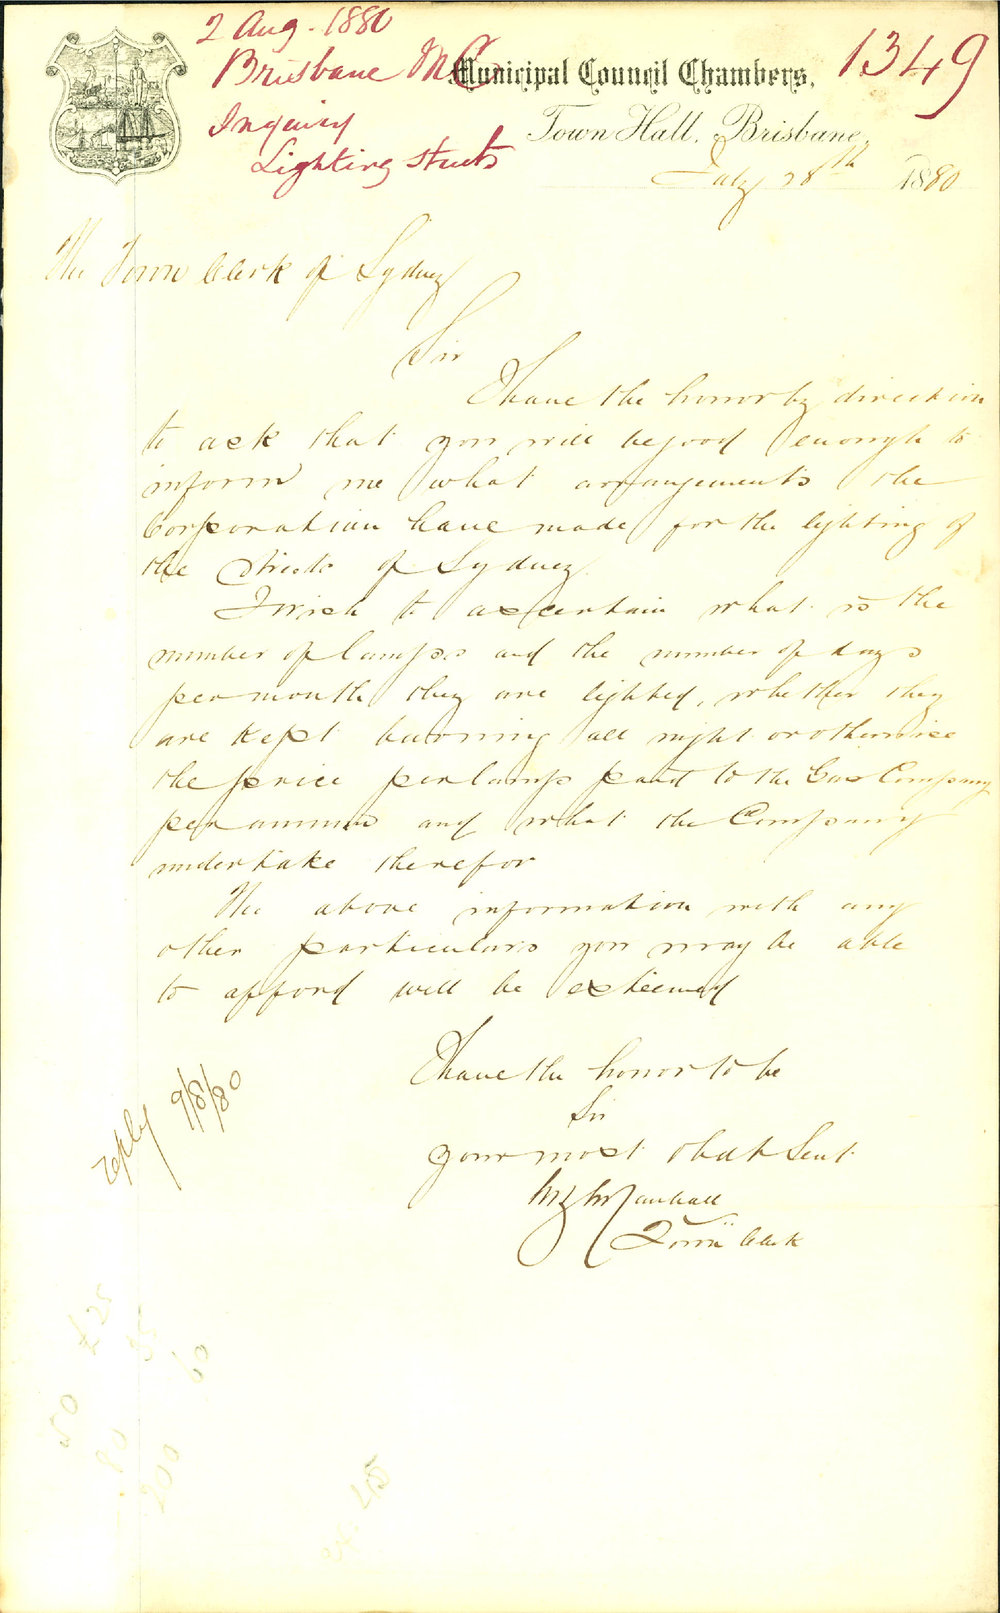 2 Aug. 1880
Brisbane M C
Inquiry
Lighting Streets
1349
Municipal Council Chambers,
Town Hall, Brisbane,
July 28th 1880
The Town Clerk of Sydney
Sir
I have the honor by direction
to ask that you will be good enough to
inform me what arrangements the
Corporation have made for the lighting of
the Streets of Sydney.
I wish to ascertain what is the
number of lamps and the number of days
per month they are lighted, whether they
are kept burning all night or otherwise
the price per lamp paid to the Gas Company
per annum and what the Company
undertake therefor
The above information with any
other particulars you may be able
to afford will be esteemed
I have the honor to be
Sir
your most obdt Servt
Town Clerk
reply 9/8/80
£25
50
80
200
60